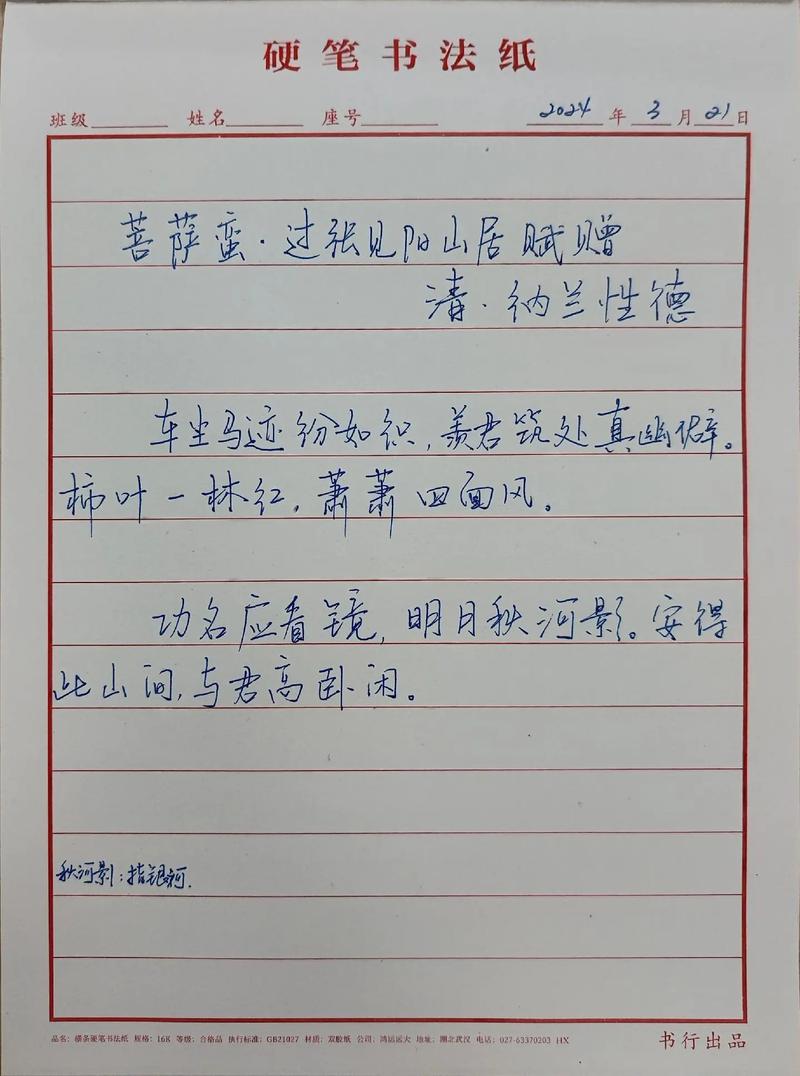 硬笔书法纸
班级 姓名 座号 2024年3月21日
菩萨蛮·过张见阳山居赋赠
清·纳兰性德
车尘马迹纷如织,羡君筑处真幽僻。
柿叶一林红,萧萧四面风。
功名应看镜,明月秋河影。安得
此山间,与君高卧闲。
秋河影:指银河.
品名:横条硬笔书法纸 规格:16K 等级:合格品 执行标准:GB21027 材质:双胶纸 公司:鸿运远大 地址:湖北武汉 电话:027-63370203 HX
书行出品